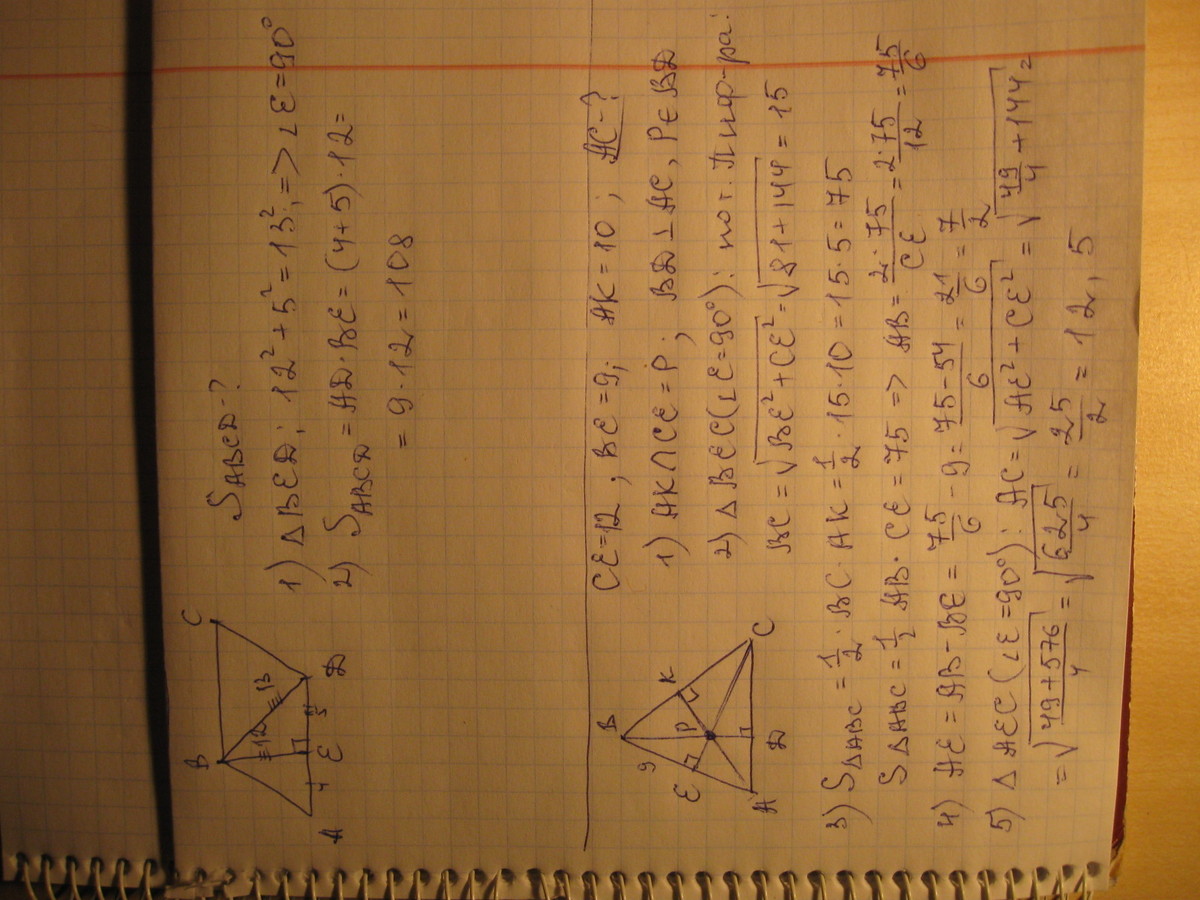 S_ABCD - ?
1) △BED: 12² + 5² = 13² => ∠E = 90°
2) S_ABCD = AD · BE = (4+5) · 12 =
= 9 · 12 = 108
B C
12 13
A 4 E 5 D
CE = 12, BE = 9; AK = 10; AC - ?
1) AK ∩ CE = P; BD ⊥ AC, P ∈ BD
2) △BEC (∠E = 90°): по т. Пифагора:
BC = √(BE² + CE²) = √(81 + 144) = 15
B
9 K
E P
A D C
3) S_△ABC = 1/2 · BC · AK = 1/2 · 15 · 10 = 15 · 5 = 75
S_△ABC = 1/2 AB · CE = 75 => AB = 2 · 75/CE = 2 · 75/12 = 75/6
4) AE = AB - BE = 75/6 - 9 = (75 - 54)/6 = 21/6 = 7/2
5) △AEC (∠E = 90°): AC = √(AE² + CE²) = √(49/4 + 144) =
= √((49 + 576)/4) = √(625/4) = 25/2 = 12,5